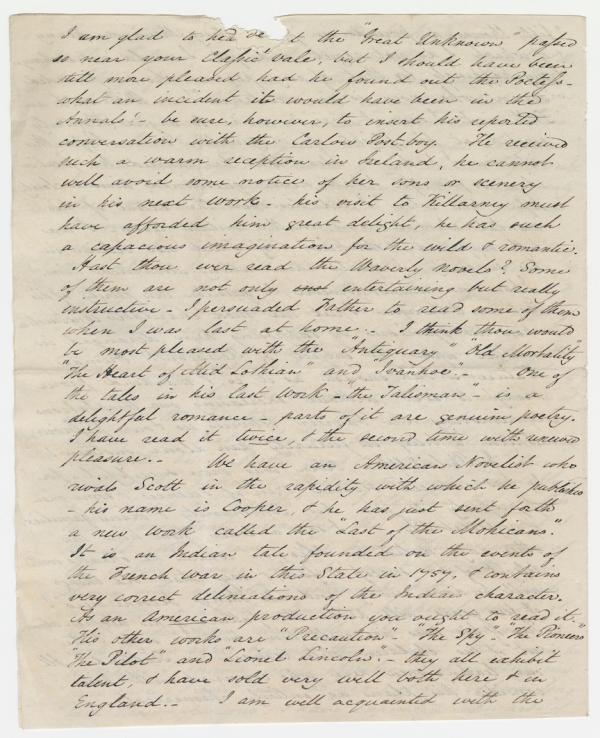 I am glad to hea t the "Great Unknown" passed
so near your Classic vale, but I should have been
still more pleased had he found out the Poetess -
what an incident it would have been in the
Annals! - be sure, however, to insert his reported
conversation with the Carlow Post-boy. He received
such a warm reception in Ireland, he cannot
well avoid some notice of her sons or scenery
in his next work - his visit to Killarney must
have afforded him great delight, he has such
a capacious imagination for the wild & romantic.
Hast thou ever read the Waverly novels? Some
of them are not only entertaining but really
instructive - I persuaded Father to read some of them
when I was last at home. - I think thou would
be most pleased with the "Antiquary" "Old Mortality"
"The Heart of Mid Lothian" and "Ivanhoe". - One of
the tales in his last work - "the Talisman" - is a
delightful romance - parts of it are genuine poetry.
I have read it twice, & the second time with
pleasure. - We have an American Novelist who
rivals Scott in the rapidity with which he publishes
- his name is Cooper, & he has just sent forth
a new work called the "Last of the Mohicans."
It is an Indian tale founded on the events of
the French war in this State in 1757, & contains
very correct delineations of the Indian character.
As an American production you ought to read it.
His other works are "Precaution" - "The Spy" - "The Pioneers"
"The Pilot" and "Lionel Lincoln". - they all exhibit
talent, & have sold very well both here & in
England. - I am well acquainted with the